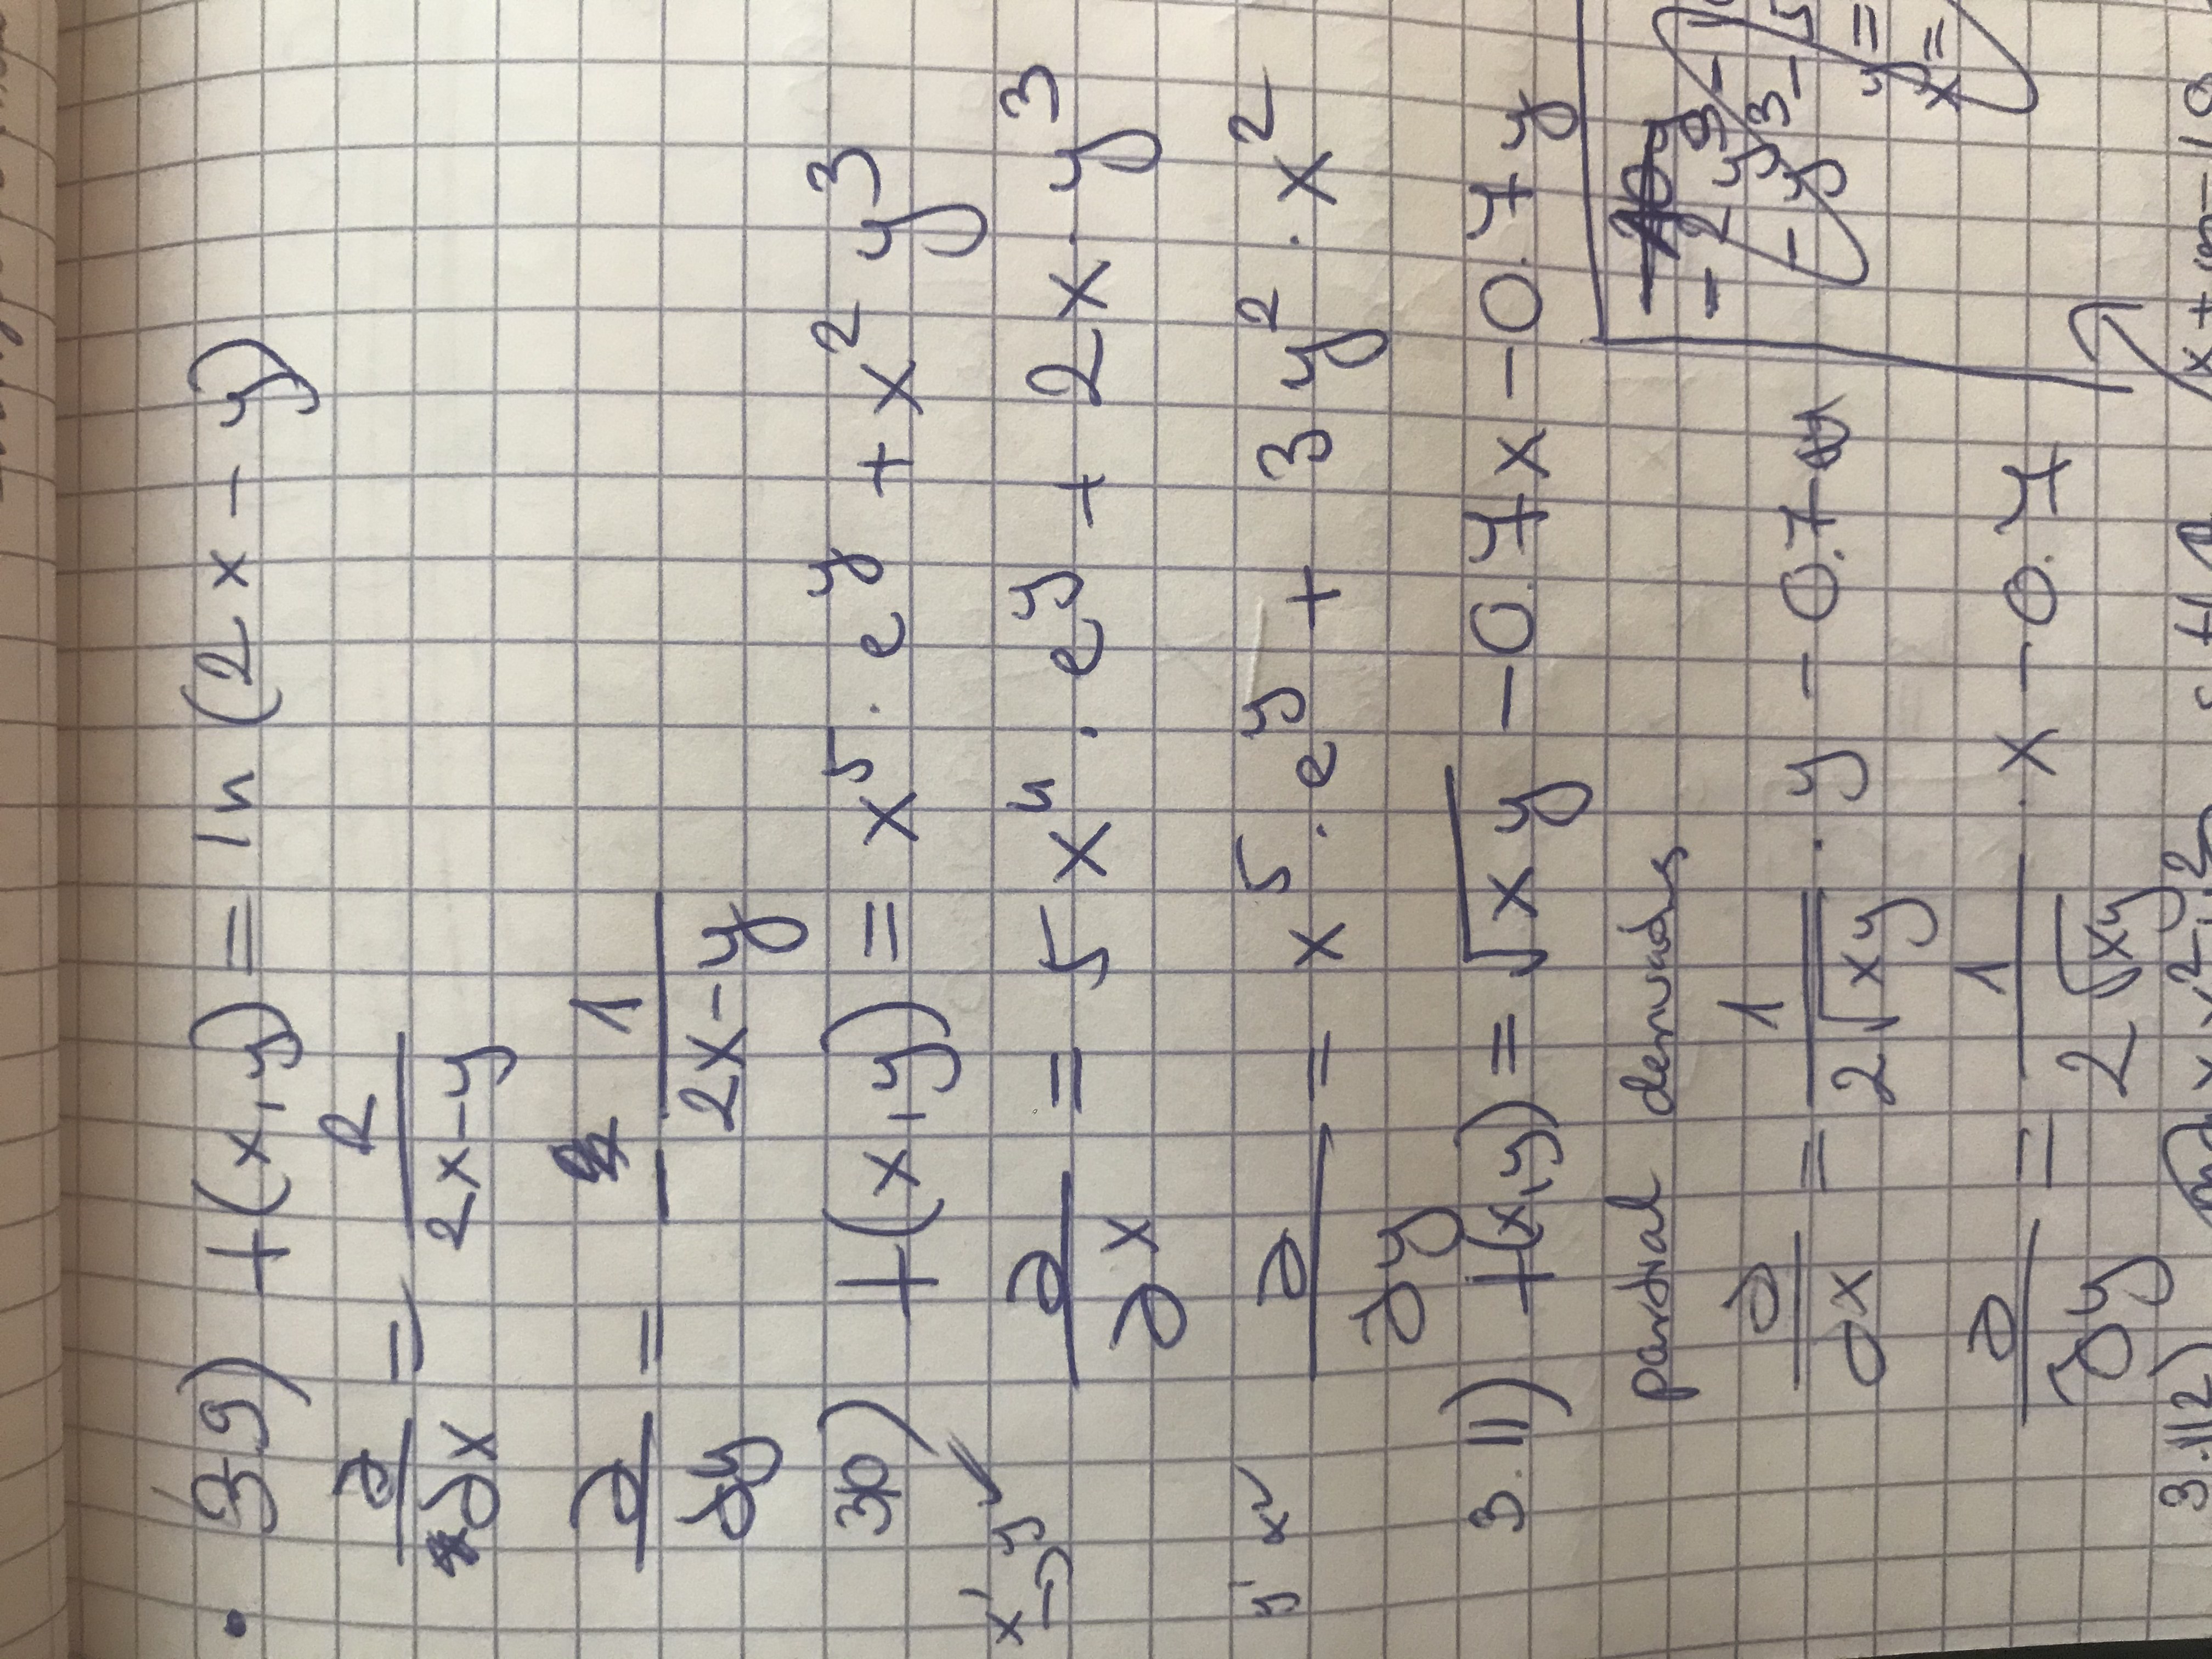 • 3.9) f(x,y) = ln (2x - y)
∂/∂x = 2/(2x-y)
∂/∂y = - 1/(2x-y)
3.10) f(x,y) = x⁵ · e^y + x² y³
x' → y ✓
∂/∂x = 5x⁴ · e^y + 2x · y³
y' x ✓
∂/∂y = x⁵ · e^y + 3y² · x²
3.11) f(x,y) = √(xy) - 0.7x - 0.7y
partial derivatives
∂/∂x = 1/(2√(xy)) · y - 0.7
∂/∂y = 1/(2√(xy)) · x - 0.7
- 2y³ -
- y³ - 5
y =
x =
3.12)